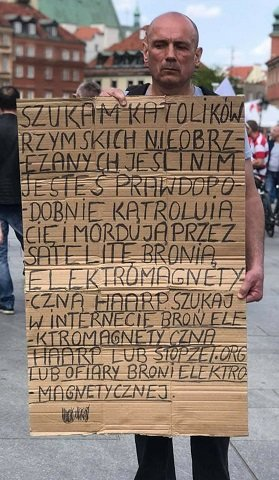 SZUKAM KATOLIKÓW
RZYMSKICH NIEOBRZ-
EZANYCH JEŚLI NIM
JESTEŚ PRAWDOPO
-DOBNIE KĄTROLUJĄ
CIĘ I MORDUJĄ PRZEZ
SATELITE BRONIĄ
ELEKTROMAGNETY
-CZNĄ HAARP SZUKAJ
W INTERNECIE BROŃ ELE
-KTROMAGNETYCZNA
HAARP LUB STOPZET.ORG
LUB OFIARY BRONI ELEKTRO
-MAGNETYCZNEJ.